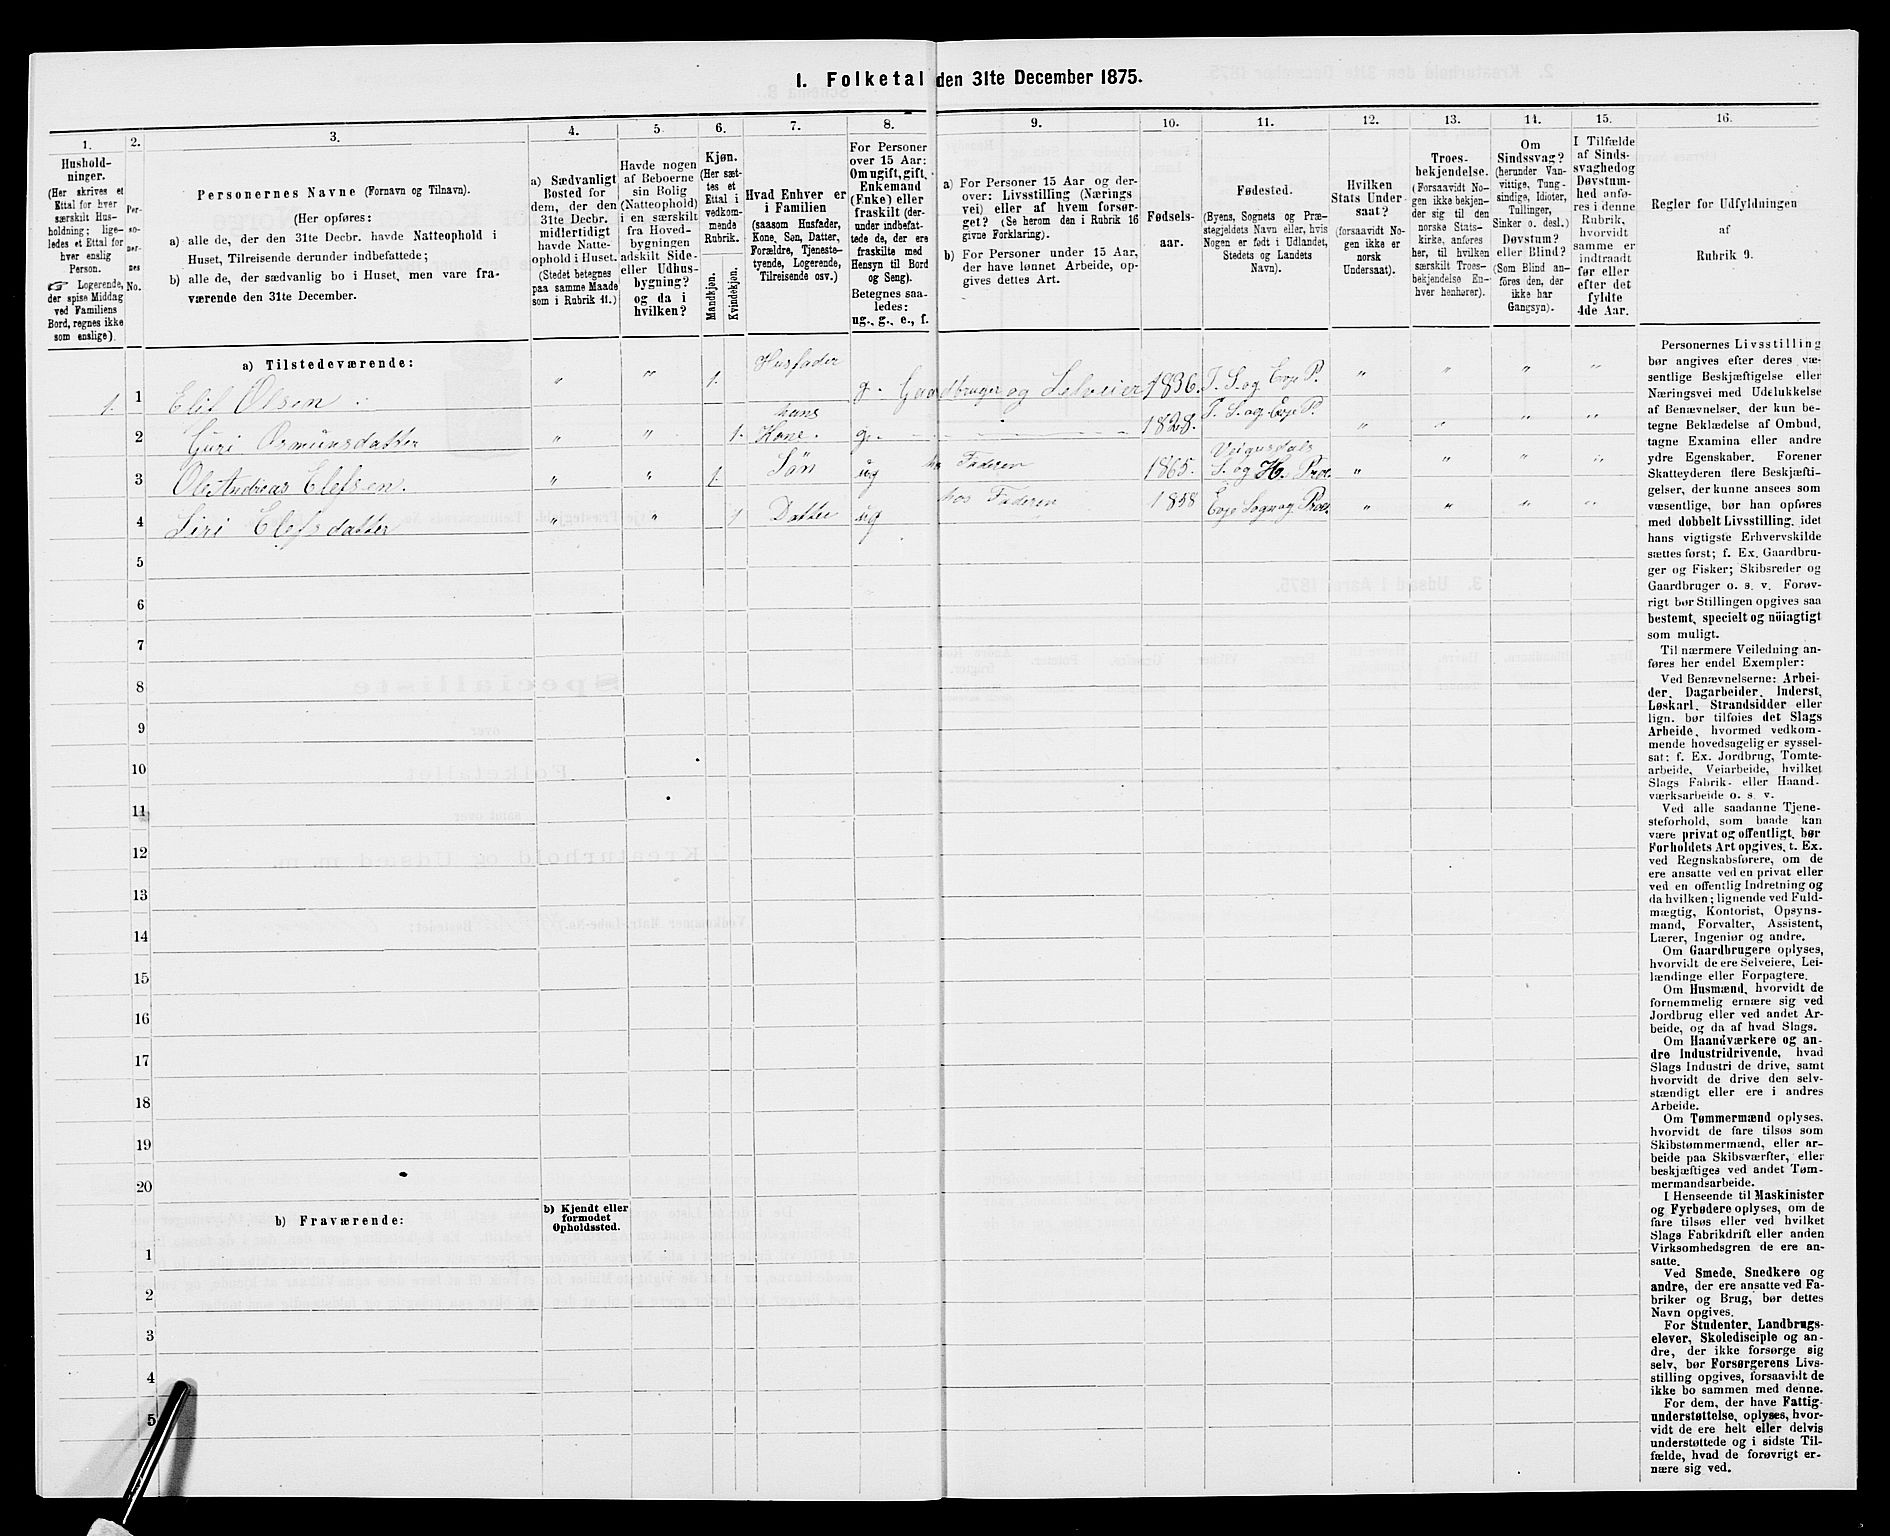 1. Folketal den 31te December 1875.
1.
Hushold-
ninger.
(Her skrives et
Ettal for hver
særskilt Hus-
holdning; lige-
ledes et Ettal for
hver enslig
Person.
☞ Logerende,
der spise Middag
ved Familiens
Bord, regnes ikke
som enslige).
2.
Per-
so-
ner-
nes
No.
3.
Personernes Navne (Fornavn og Tilnavn).
(Her opføres:
a) alle de, der den 31te Decbr. havde Natteophold i
Huset, Tilreisende derunder indbefattede;
b) alle de, der sædvanlig bo i Huset, men vare fra-
værende den 31te December.
4.
a) Sædvanligt
Bosted for
dem, der den
31te Decbr.
midlertidigt
havde Natte-
ophold i Huset.
(Stedet betegnes
paa samme Maade
som i Rubrik 11.)
5.
Havde nogen
af Beboerne
sin Bolig
(Natteophold)
i en særskilt
fra Hoved-
bygningen
adskilt Side-
eller Udhus-
bygning?
og da i
hvilken?
6.
Kjøn.
(Her sæt-
tes et
Ettal i
vedkom-
mende
Rubrik.
Mandkjøn.
Kvindekjøn.
7.
Hvad Enhver er
i Familien
(saasom Husfader,
Kone, Søn, Datter,
Forældre, Tjeneste-
tyende, Logerende,
Tilreisende osv.)
8.
For Personer
over 15 Aar:
Om ugift, gift,
Enkemand
(Enke) eller
fraskilt (der-
under indbefat-
tede de, der ere
fraskilte med
Hensyn til Bord
og Seng).
Betegnes saa-
ledes:
ug., g., e., f.
9.
a) For Personer 15 Aar og der-
over: Livsstilling (Nærings
vei) eller af hvem forsør-
get? (Se herom den i Rubrik 16
givne Forklaring).
b) For Personer under 15 Aar,
der have lønnet Arbeide, op-
gives dettes Art.
10.
Fødsels-
aar.
11.
Fødested.
(Byens, Sognets og Præ-
stegjeldets Navn eller, hvis
Nogen er født i Udlandet,
Stedets og Landets
Navn).
12.
Hvilken
Stats Under
saat?
(forsaavidt No-
gen ikke er
norsk
Undersaat).
13.
Troes-
bekjendelse.
(Forsaavidt No-
gen ikke bekjen-
der sig til den
norske Stats-
kirke, anføres
her, til hvilken
særskilt Troes-
bekjendelse En-
hver henhører).
14.
Om
Sindssvag?
(herunder Van-
vittige, Tung-
sindige, Idioter,
Tullinger,
Sinker o. desl.)
Døvstum?
eller Blind?
(Som Blind an-
føres den, der
ikke har
Gangsyn).
15.
I Tilfælde
af Sinds-
svaghed og
Døvstum-
hed anfø-
res i denne
Rubrik,
hvorvidt
samme er
indtraadt
før eller
efter det
fyldte
4de Aar.
16.
Regler for Udfyldningen
af
Rubrik 9.
a) Tilstedeværende:
1. 1 Elif Olsen " " 1. Husfader g. Gaardbruger og Selveier 1836. T. S. og Evje P. " " " "
2 Guri Osmunsdatter " " 1. hans Kone. g. 1828. T. S. og Evje P. " " " "
3 Ole Andreas Elefsen. " " 1. Søn ug Faderen 1865. Veigusdals S. og H. Præ. " " " "
4 Siri Elefsdatter " " 1 Datter ug hos Faderen 1858 Evje Sogn og Præ. " " " "
5
6
7
8
9
10
11
12
13
14
15
16
17
18
19
20
b) Fraværende:
b) Kjendt eller
formodet
Opholdssted.
1
2
3
4
5
Personernes Livsstilling
bør angives efter deres væ-
sentlige Beskjæftigelse eller
Næringsvei med Udelukkelse
af Benævnelser, der kun be-
tegne Beklædelse af Ombud,
tagne Examina eller andre
ydre Egenskaber. Forener
Skatteyderen flere Beskjæfti-
gelser, der kunne ansees som
væsentlige, bør han opføres
med dobbelt Livsstilling, idet
hans vigtigste Erhvervskilde
sættes først; f. Ex. Gaardbru-
ger og Fisker; Skibsreder og
Gaardbruger o. s. v. Forøv-
rigt bør Stillingen opgives saa
bestemt, specielt og nöiagtigt
som muligt.
Til nærmere Veiledning an-
føres her endel Exempler:
Ved Benævnelserne: Arbei-
der, Dagarbeider, Inderst,
Løskarl, Strandsidder eller
lign. bør tilføies det Slags
Arbeide, hvormed vedkom-
mende hovedsagelig er syssel-
sat; f. Ex. Jordbrug, Tomte-
arbeide, Veiarbeide, hvilket
Slags Fabrik- eller Haand-
værksarbeide o. s. v.
Ved alle saadanne Tjene-
steforhold, som baade kan
være privat og offentligt, bør
Forholdets Art opgives, t. Ex.
ved Regnskabsførere, om de
ere ansatte ved en privat eller
ved en offentlig Indretning og
da hvilken; lignende ved Fuld-
mægtig, Kontorist, Opsyns-
mand, Forvalter, Assistent,
Lærer, Ingeniør og andre.
Om Gaardbrugere oplyses,
hvorvidt de ere Selveiere, Lei-
lændinge eller Forpagtere.
Om Husmænd, hvorvidt de
fornemmelig ernære sig ved
Jordbrug eller ved andet Ar-
beide, og da af hvad Slags.
Om Haandværkere og an-
dre Industridrivende, hvad
Slags Industri de drive, samt
hvorvidt de drive den selv-
stændigt eller ere i andres
Arbeide.
Om Tømmermænd oplyses,
hvorvidt de fare tilsøs som
Skibstømmermænd, eller ar-
beide paa Skibsværfter, eller
beskjæftiges ved andet Tøm-
mermandsarbeide.
I Henseende til Maskinister
og Fyrbødere oplyses, om de
fare tilsøs eller ved hvilket
Slags Fabrikdrift eller anden
Virksomhedsgren de ere an-
satte.
Ved Smede, Snedkere og
andre, der ere ansatte ved Fa-
briker og Brug, bør dettes
Navn opgives.
For Studenter, Landbrugs-
elever, Skoledisciple og an-
dre, der ikke forsørge sig
selv, bør Forsørgerens Livs-
stilling opgives, forsaavidt de
ikke bo sammen med denne.
For dem, der have Fattig-
understøttelse, oplyses, hvor-
vidt de ere helt eller delvis
understøttede og i sidste Til-
fælde, hvad de forøvrigt er-
nære sig ved.